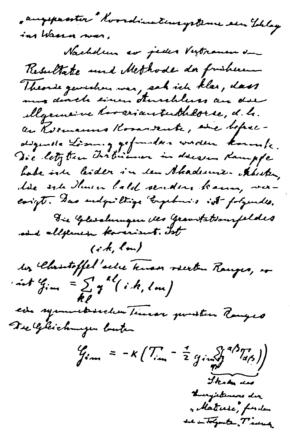 „angepasster" Koordinatensysteme ein Schlag
ins Wasser war.
Nachdem so jedes Vertrauen in
Resultate und Methode der früheren
Theorie gewichen war, sah ich klar, dass
nur durch einen Anschluss an die
allgemeine Kovariantentheorie, d. h.
an Riemanns Kovariante, eine befrie-
digende Lösung gefunden werden konnte.
Die letzten Irrtümer in diesem Kampfe
habe ich leider in den Akademie-Arbeiten,
die ich Ihnen bald senden kann, ver-
ewigt. Das endgültige Ergebnis ist folgendes.
Die Gleichungen des Gravitationsfeldes
sind allgemein kovariant. Ist
(ik, lm)
der Christoffel'sche Tensor vierten Ranges, so
ist G_im = Σ_kl g^kl (ik, lm)
ein symmetrischer Tensor zweiten Ranges
Die Gleichungen lauten
G_im = -κ (T_im - 1/2 g_im Σ_αβ g^αβ T_αβ)
Skalar des
Energietensors der
„Materie", für den
ich im Folgenden „T"